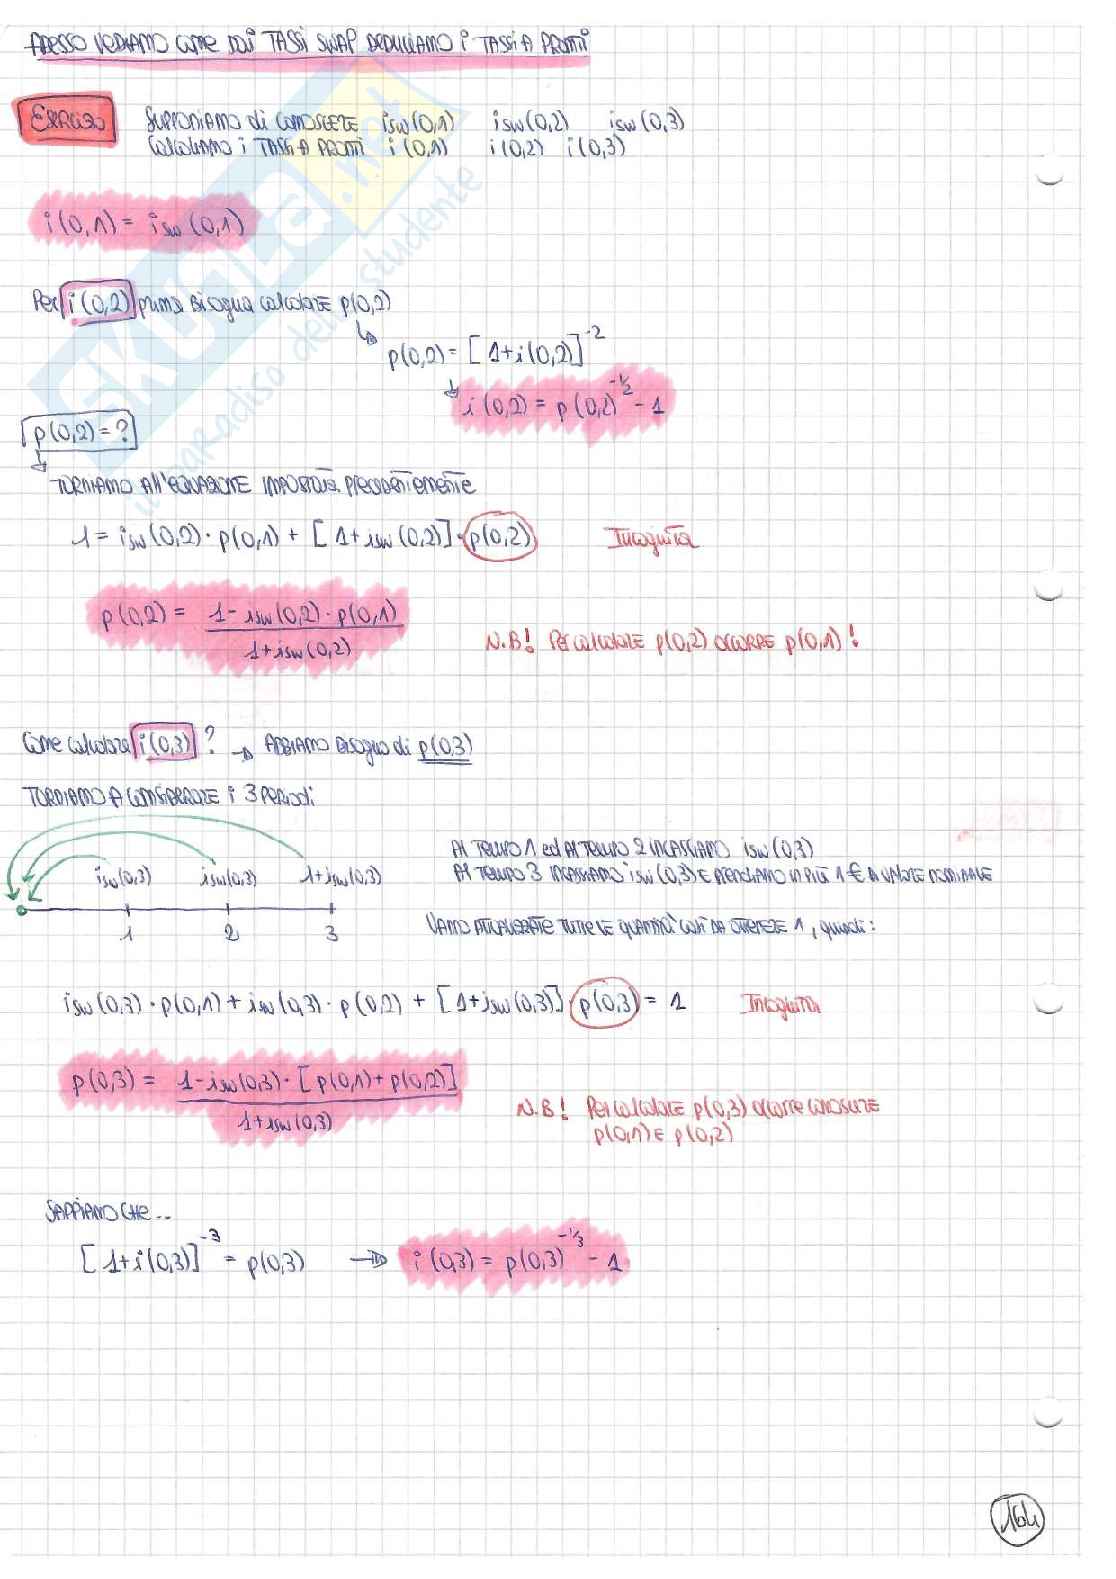 ADESSO VEDIAMO COME DAI TASSI SWAP DEDUCIAMO i TASSI A PRONTI
ESERCIZIO SUPPONIAMO di CONOSCERE isw(0,1) isw(0,2) isw(0,3)
CALCOLIAMO i TASSI A PRONTI i(0,1) i(0,2) i(0,3)
i(0,1) = isw(0,1)
Per i(0,2) prima Bisogna calcolare p(0,2)
↳ p(0,2) = [1+i(0,2)]^-2
↓ i(0,2) = p(0,2)^-1/2 - 1
p(0,2) = ?
↓ TORNIAMO All'EQUAZIONE IMPOSTATA PRECEDENTEMENTE
1 = isw(0,2) · p(0,1) + [1+isw(0,2)] · p(0,2) Incognita
p(0,2) = 1 - isw(0,2) · p(0,1) / 1+isw(0,2)
N.B! Per calcolare p(0,2) occorre p(0,1)!
Come calcolare i(0,3)? → ABBIAMO Bisogno di p(0,3)
TORNIAMO A CONSIDERARE i 3 PERIODI
isw(0,3) isw(0,3) 1+isw(0,3)
1 2 3
Al TEMPO 1 ed Al TEMPO 2 INCASSIAMO isw(0,3)
Al TEMPO 3 INCASSIAMO isw(0,3) E PRENDIAMO IN PIÙ 1 € di VALORE NOMINALE
VANNO ATTUALIZZATE TUTTE LE QUANTITÀ COSÌ DA OTTENERE 1, quindi:
isw(0,3) · p(0,1) + isw(0,3) · p(0,2) + [1+isw(0,3)] · p(0,3) = 1 Incognita
p(0,3) = 1 - isw(0,3) · [p(0,1) + p(0,2)] / 1+isw(0,3)
N.B! Per calcolare p(0,3) occorre conoscere
p(0,1) E p(0,2)
SAPPIAMO CHE...
[1+i(0,3)]^-3 = p(0,3) → i(0,3) = p(0,3)^-1/3 - 1
164
SKUOLA.net
il paradiso dello studente